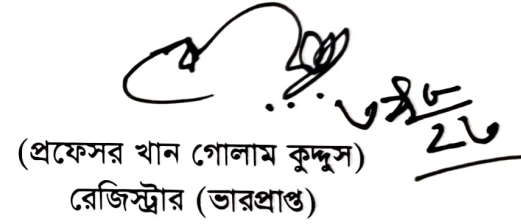 (প্রফেসর খান গোলাম কুদ্দুস)
রেজিস্ট্রার (ভারপ্রাপ্ত)